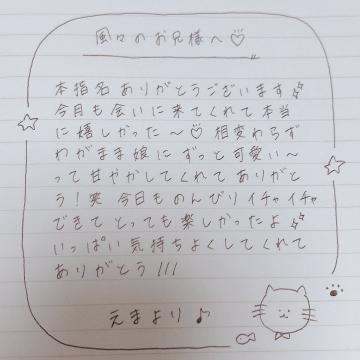 風々のお兄様へ♡
本指名ありがとうございます
今月も会いに来てくれて本当
に嬉しかった〜♡ 相変わらず
わがまま娘にずっと可愛い〜
って甘やかしてくれてありがと
う!笑 今日ものんびりイチャイチャ
できてとっても楽しかったよ
いっぱい気持ちよくしてくれて
ありがとう!!!
えまより♪